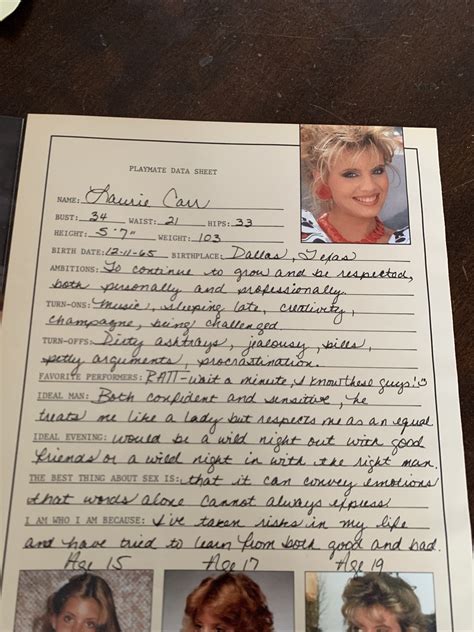 PLAYMATE DATA SHEET
NAME: Laurie Carr
BUST: 34 WAIST: 21 HIPS: 33
HEIGHT: 5'7" WEIGHT: 103
BIRTH DATE: 12-11-65 BIRTHPLACE: Dallas, Texas
AMBITIONS: To continue to grow and be respected,
both personally and professionally.
TURN-ONS: Music, sleeping late, creativity,
champagne, being challenged.
TURN-OFFS: Dirty ashtrays, jealousy, bills,
petty arguments, procrastination.
FAVORITE PERFORMERS: RATT-wait a minute, I know these guys!
IDEAL MAN: Both confident and sensitive, he
treats me like a lady but respects me as an equal.
IDEAL EVENING: would be a wild night out with good
friends or a wild night in with the right man.
THE BEST THING ABOUT SEX IS: that it can convey emotions
that words alone cannot always express
I AM WHO I AM BECAUSE: I've taken risks in my life
and have tried to learn from both good and bad.
Age 15 Age 17 Age 19